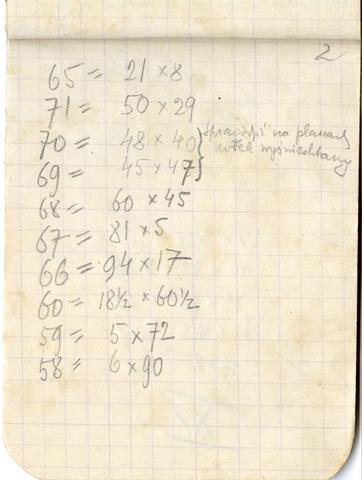 2
65 = 21 × 8
71 = 50 × 29
70 = 48 × 40
69 = 45 × 47
sprawdzić na planach
68 = 60 × 45
67 = 81 × 5
66 = 94 × 17
60 = 18½ × 60½
59 = 5 × 72
58 = 6 × 90